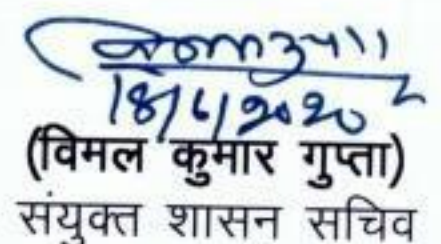 18/6/2020
(विमल कुमार गुप्ता)
संयुक्त शासन सचिव